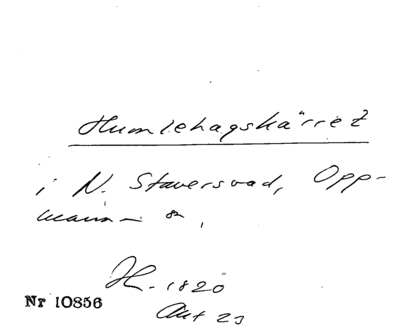 Humlehagskärret
i N. Staversvad, Opp-
manna sn,
H. 1820
Akt 23
Nr 10856